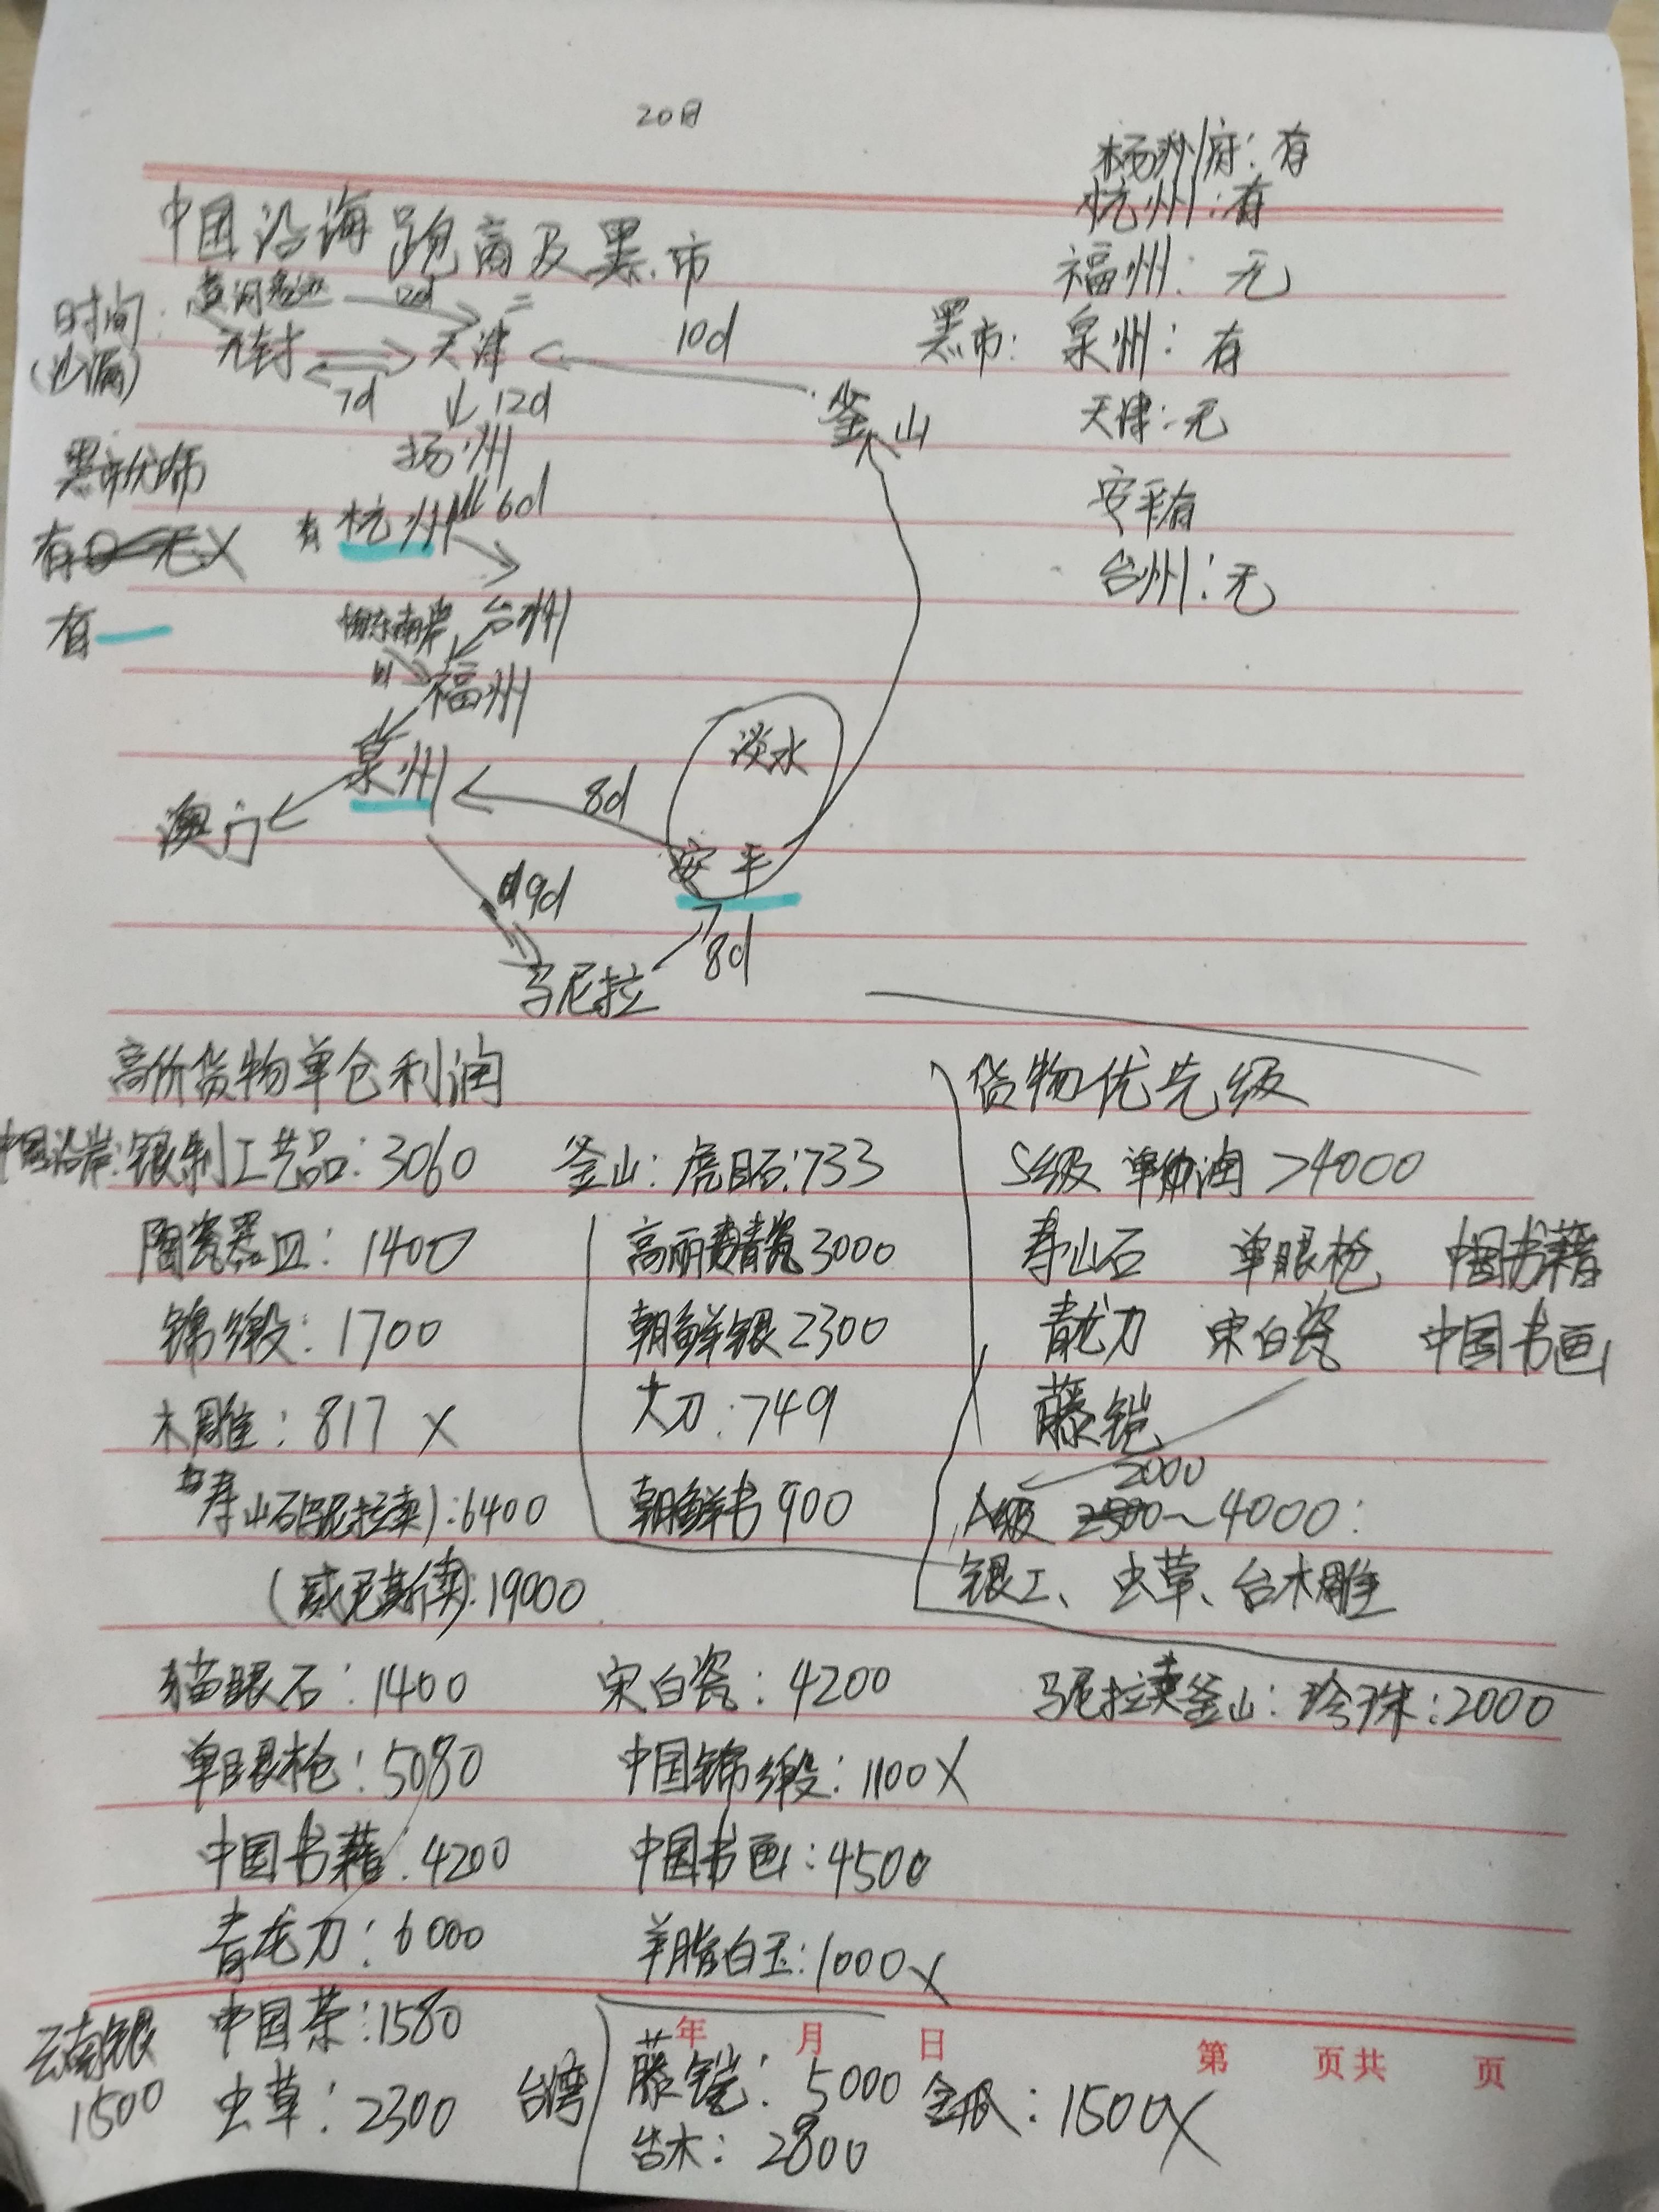 20日
杨州府：有
杭州：有
中国沿海跑商及黑市
福州：无
时间：
12d
开封
7d
天津
10d
釜山
黑市：泉州：有
天津：无
12d
扬州
黑市优师
安平有
有 杭州 6d
台州：无
有
台州
福州
泉州
淡水
澳门
8d
安平
19d
8d
马尼拉
高价货物单仓利润
货物优先级
中国沿岸：银制工艺品：3060
釜山：虎目石：733
S级 单仓利润 >4000
陶瓷器皿：1400
高丽青瓷3000
寿山石 单眼枪 中国书籍
锦缎：1700
朝鲜银2300
青龙刀 宋白瓷 中国书画
木雕：817 X
大刀：749
藤铠
寿山石(马尼拉卖)：6400
朝鲜书900
A级 2000~4000：
(威尼斯卖)：19000
银工、虫草、台木雕
猫眼石：1400
宋白瓷：4200
马尼拉卖釜山：珍珠：2000
单眼枪：5080
中国锦缎：1100X
中国书籍：4200
中国书画：4500
青龙刀：6000
羊脂白玉：1000X
云南银 1500
中国茶：1580
年 月 日 第 页共 页
虫草：2300
台湾
藤铠：5000
台木：2800
1500X